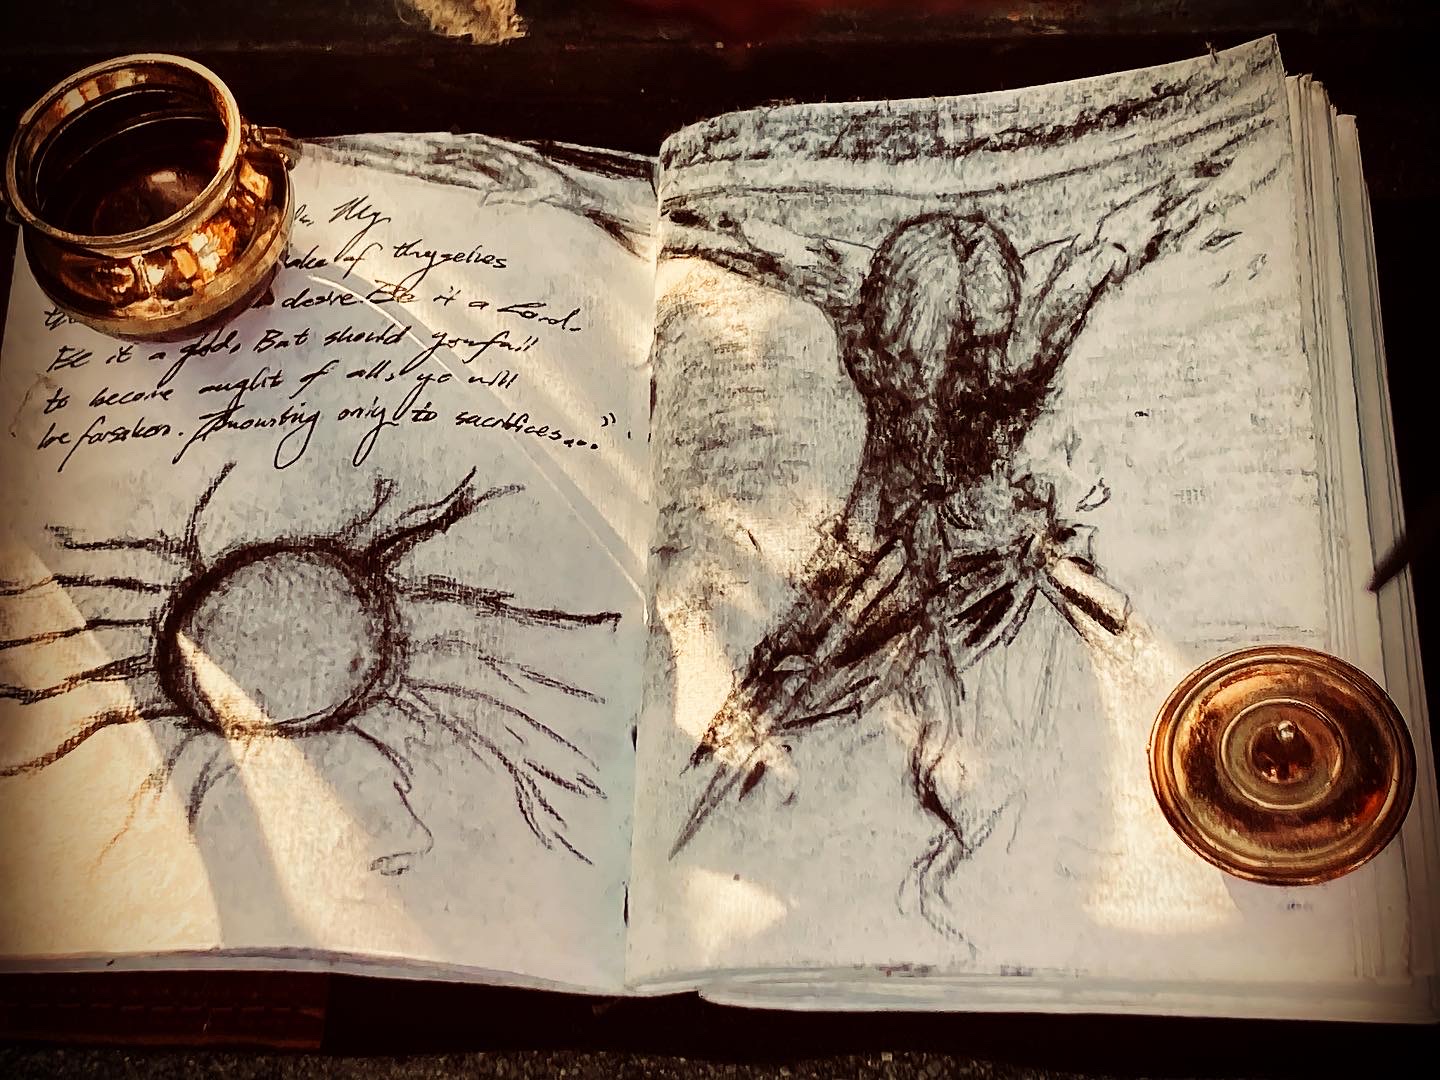 My
make of thyselves
desire. Be it a Lord.
Be it a god. But should you fail
to become aught of all, ye will
be forsaken. Amounting only to sacrifices..."